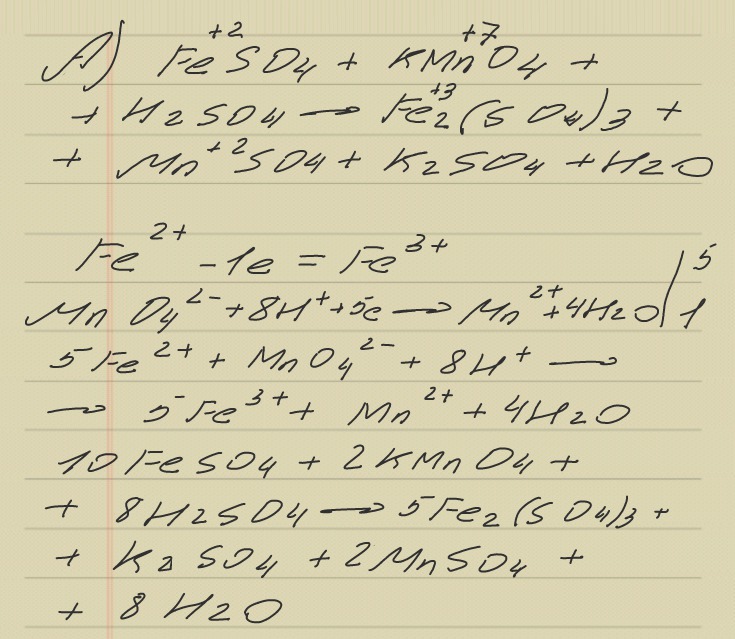 A) Fe⁺²SO₄ + KMn⁺⁷O₄ +
+ H₂SO₄ → Fe⁺³₂(SO₄)₃ +
+ Mn⁺²SO₄ + K₂SO₄ + H₂O
Fe²⁺ - 1e = Fe³⁺ | 5
MnO₄²⁻ + 8H⁺ + 5e → Mn²⁺ + 4H₂O | 1
5Fe²⁺ + MnO₄²⁻ + 8H⁺ →
→ 5Fe³⁺ + Mn²⁺ + 4H₂O
10FeSO₄ + 2KMnO₄ +
+ 8H₂SO₄ → 5Fe₂(SO₄)₃ +
+ K₂SO₄ + 2MnSO₄ +
+ 8H₂O